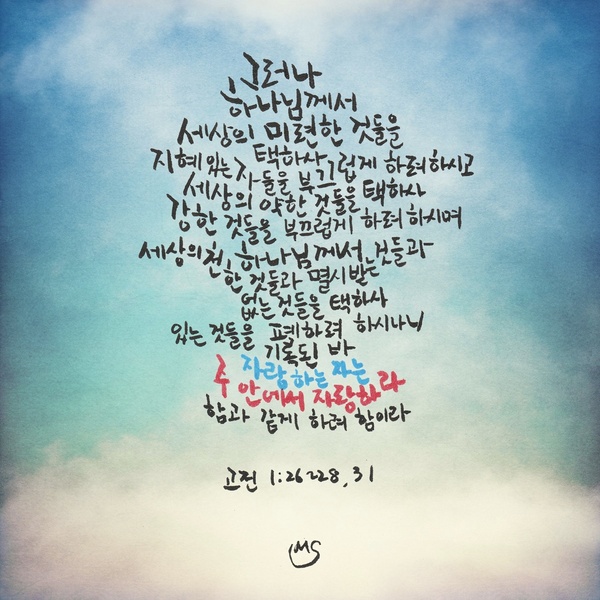 그러나
하나님께서
세상의 미련한 것들을
택하사
지혜 있는 자들을 부끄럽게 하려 하시고
세상의 약한 것들을 택하사
강한 것들을 부끄럽게 하려 하시며
하나님께서
세상의 천한 것들과 멸시받는 것들과
없는 것들을 택하사
있는 것들을 폐하려 하시나니
기록된 바
자랑하는 자는
주 안에서 자랑하라
함과 같게 하려 함이라
고전 1:26~28, 31
MS